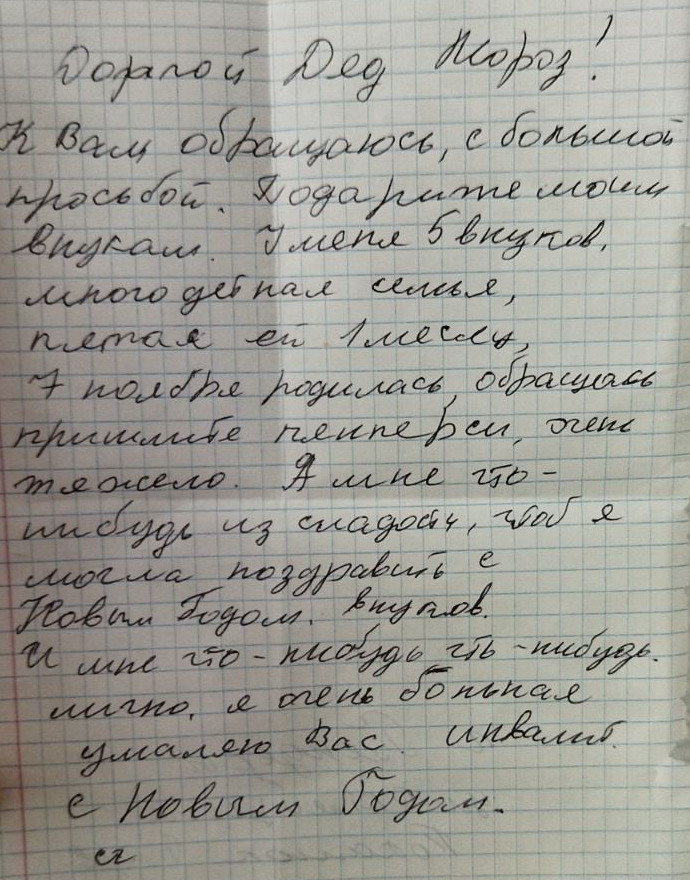 Дорагой Дед Мороз!
К Вам обращаюсь, с большой
просьбой. Подарите моим
внукам. У меня 5 внуков,
многодетная семья,
пятая ей 1 месяц,
7 ноября родилась, обращаюсь
пришлите пемперсы, очень
тяжело. А мне что-
нибудь из сладости, чтоб я
могла поздравить с
Новым Годом. внуков.
И мне что-нибудь что-нибудь.
лично. я очень больная
умаляю Вас. инвалит.
С Новым Годом.